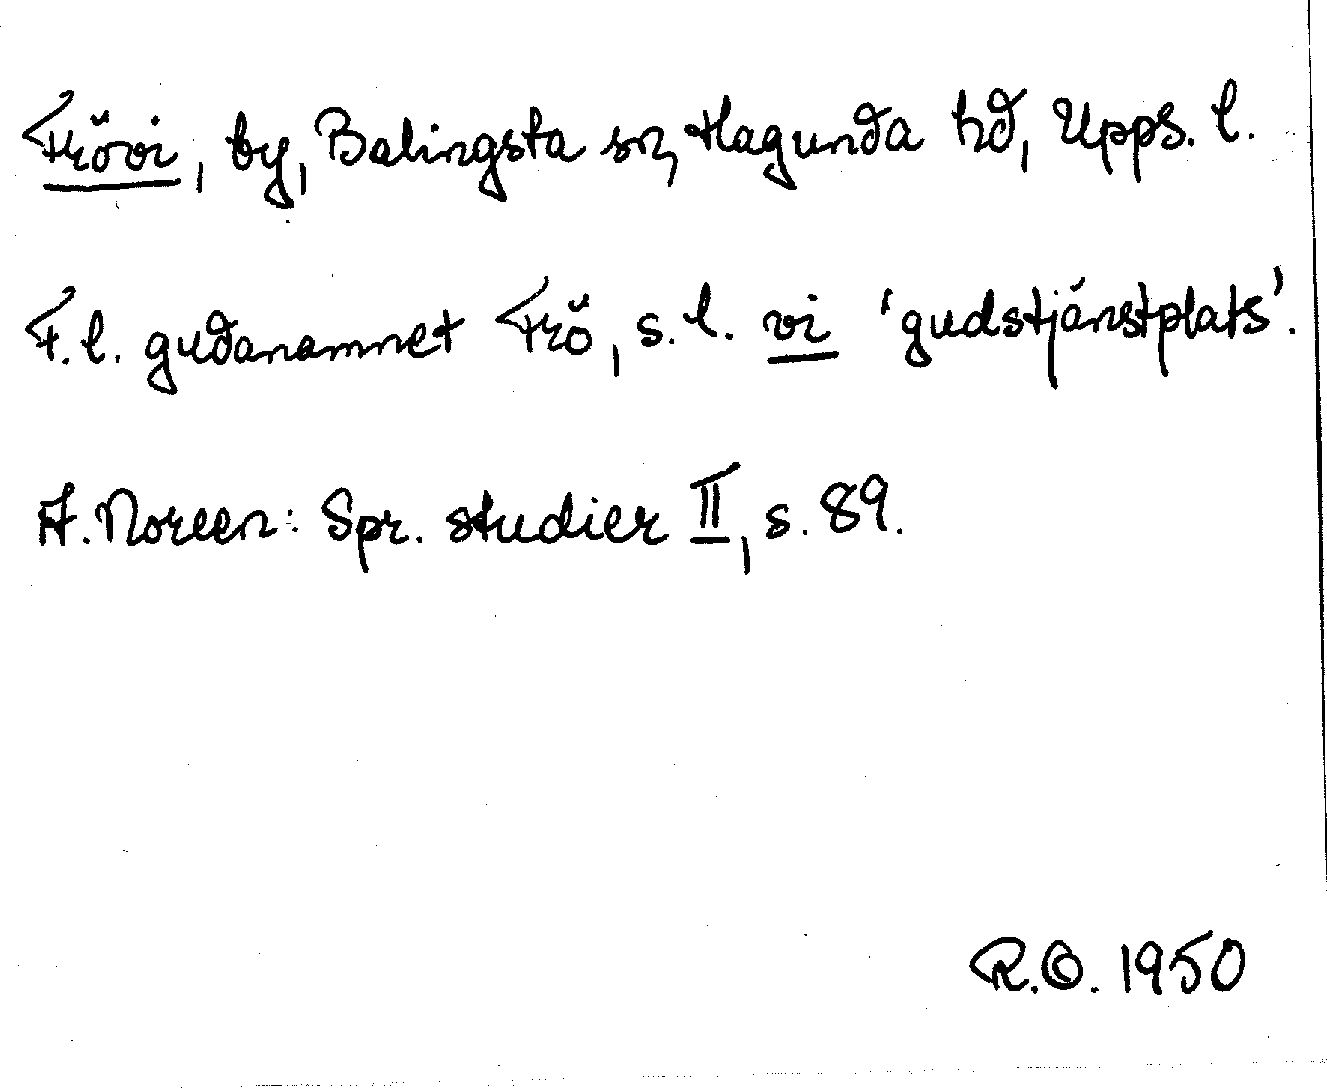 Frövi, by, Balingsta sn, Hagunda hd, Upps. l.
F.l. gudanamnet Frö, s.l. vi 'gudstjänstplats'.
A. Noreen: Spr. studier II, s. 89.
R.O. 1950